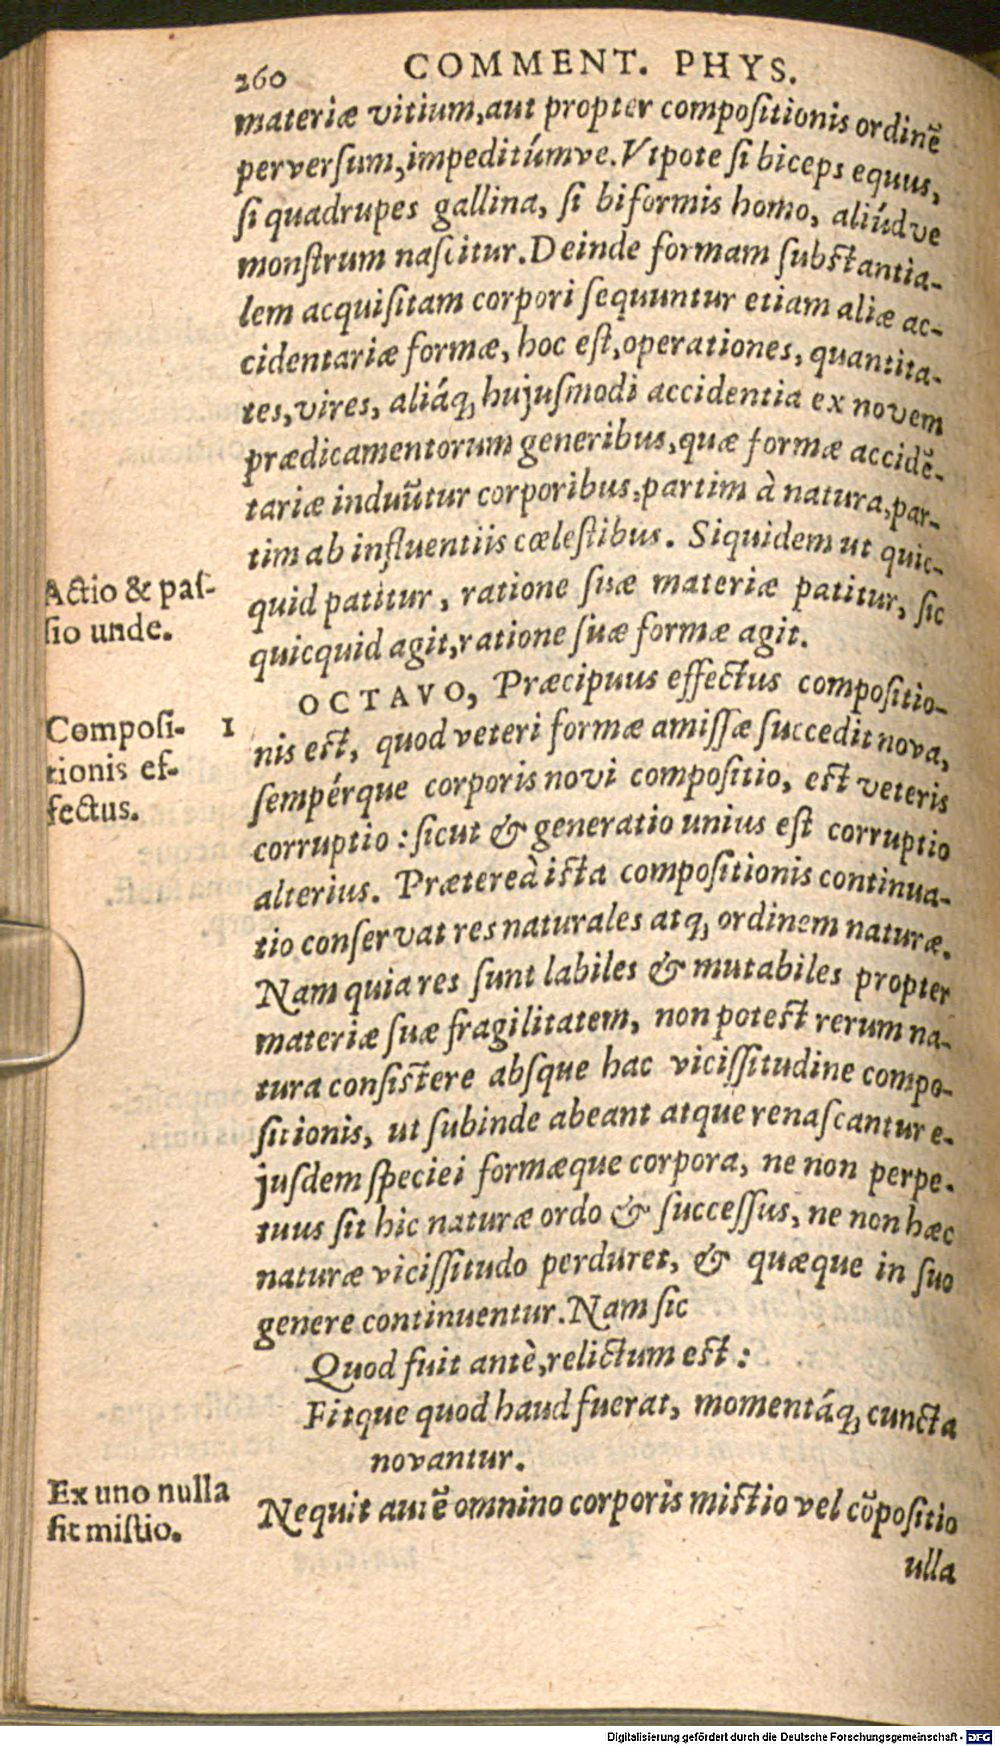 260 COMMENT. PHYS.
materiæ vitium, aut propter compoſitionis ordinẽ
perverſum, impeditúmve. Vtpote ſi biceps equus,
ſi quadrupes gallina, ſi biformis homo, aliúdve
monſtrum naſcitur. Deinde formam ſubſtantia-
lem acquiſitam corpori ſequuntur etiam aliæ ac-
cidentariæ formæ, hoc eſt, operationes, quantita-
tes, vires, aliáq; hujuſmodi accidentia ex novem
prædicamentorum generibus, quæ formæ accidẽ-
tariæ induũtur corporibus, partim à natura, par-
tim ab influentiis cœleſtibus. Siquidem ut quic-
Actio & paſ-
ſio unde.
quid patitur, ratione ſuæ materiæ patitur, ſic
quicquid agit, ratione ſuæ formæ agit.
OCTAVO, Præcipuus effectus compoſitio-
Compoſi-
tionis ef-
fectus.
1
nis eſt, quod veteri formæ amiſſæ ſuccedit nova,
ſempérque corporis novi compoſitio, eſt veteris
corruptio: ſicut & generatio unius eſt corruptio
alterius. Prætereà iſta compoſitionis continua-
tio conſervat res naturales atq; ordinem naturæ.
Nam quia res ſunt labiles & mutabiles propter
materiæ ſuæ fragilitatem, non poteſt rerum na-
tura conſiſtere abſque hac viciſſitudine compo-
ſitionis, ut ſubinde abeant atque renaſcantur e-
juſdem ſpeciei formæque corpora, ne non perpe-
tuus ſit hic naturæ ordo & ſucceſſus, ne non hæc
naturæ viciſſitudo perduret, & quæque in ſuo
genere continuentur. Nam ſic
Quod fuit antè, relictum eſt:
Fitque quod haud fuerat, momentáq; cuncta
novantur.
Ex uno nulla
fit miſtio.
Nequit autẽ omnino corporis miſtio vel cõpoſitio
ulla
Digitalisierung gefördert durch die Deutsche Forschungsgemeinschaft - DFG